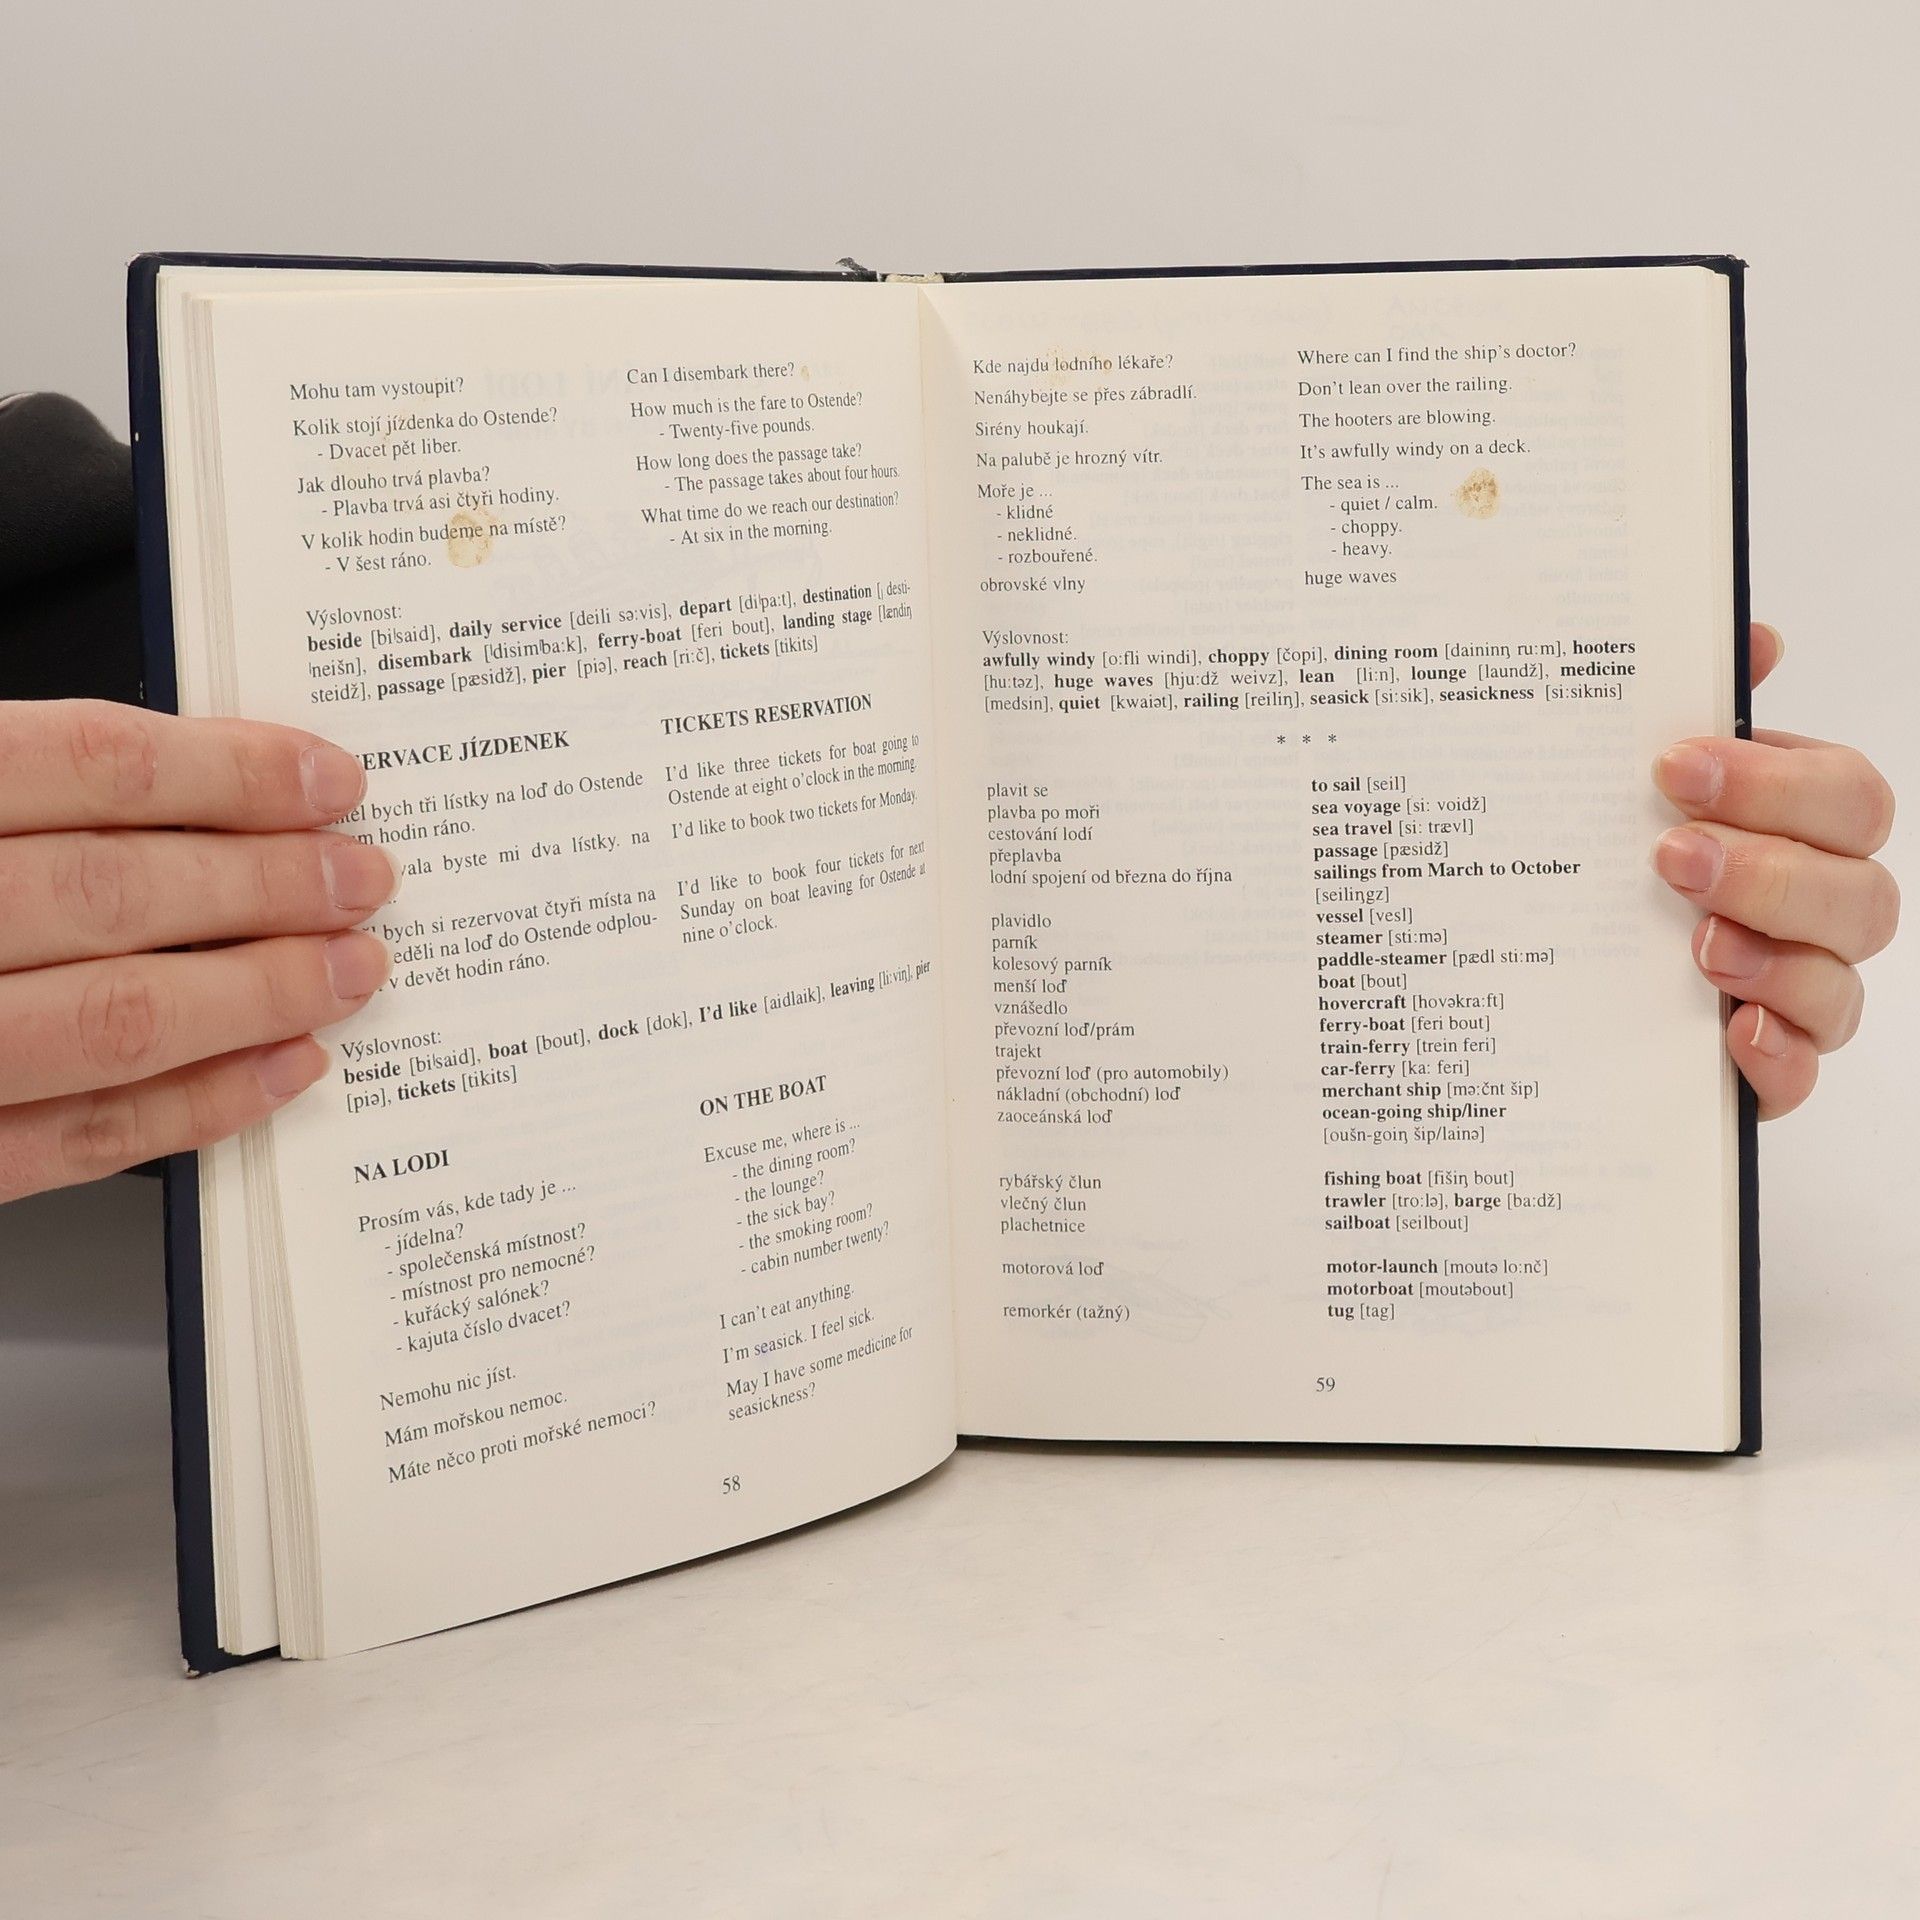 Mohu tam vystoupit?
Kolik stojí jízdenka do Ostende?
- Dvacet pět liber.
Jak dlouho trvá plavba?
- Plavba trvá asi čtyři hodiny.
V kolik hodin budeme na místě?
- V šest ráno.
Can I disembark there?
How much is the fare to Ostende?
- Twenty-five pounds.
How long does the passage take?
- The passage takes about four hours.
What time do we reach our destination?
- At six in the morning.
Výslovnost:
beside [biˈsaid], daily service [deili sə:vis], depart [diˈpa:t], destination [ˌdesti-
ˈneišn], disembark [ˈdisimˈba:k], ferry-boat [feri bout], landing stage [lændiŋ
steidž], passage [pæsidž], pier [piə], reach [ri:č], tickets [tikits]
ERVACE JÍZDENEK
bych tři lístky na loď do Ostende
hodin ráno.
byste mi dva lístky. na
bych si rezervovat čtyři místa na
na loď do Ostende odplou-
v devět hodin ráno.
TICKETS RESERVATION
I'd like three tickets for boat going to
Ostende at eight o'clock in the morning.
I'd like to book two tickets for Monday.
I'd like to book four tickets for next
Sunday on boat leaving for Ostende at
nine o'clock.
Výslovnost:
beside [biˈsaid], boat [bout], dock [dok], I'd like [aidlaik], leaving [li:vin], pier
[piə], tickets [tikits]
NA LODI
Prosím vás, kde tady je ...
- jídelna?
- společenská místnost?
- místnost pro nemocné?
- kuřácký salónek?
- kajuta číslo dvacet?
Nemohu nic jíst.
Mám mořskou nemoc.
Máte něco proti mořské nemoci?
ON THE BOAT
Excuse me, where is ...
- the dining room?
- the lounge?
- the sick bay?
- the smoking room?
- cabin number twenty?
I can't eat anything.
I'm seasick. I feel sick.
May I have some medicine for
seasickness?
58
Kde najdu lodního lékaře?
Nenáhybejte se přes zábradlí.
Sirény houkají.
Na palubě je hrozný vítr.
Moře je ...
- klidné
- neklidné.
- rozbouřené.
obrovské vlny
Where can I find the ship's doctor?
Don't lean over the railing.
The hooters are blowing.
It's awfully windy on a deck.
The sea is ...
- quiet / calm.
- choppy.
- heavy.
huge waves
Výslovnost:
awfully windy [o:fli windi], choppy [čopi], dining room [daininŋ ru:m], hooters
[hu:təz], huge waves [hju:dž weivz], lean [li:n], lounge [laundž], medicine
[medsin], quiet [kwaiət], railing [reiliŋ], seasick [si:sik], seasickness [si:siknis]
* * *
plavit se
plavba po moři
cestování lodí
přeplavba
lodní spojení od března do října
plavidlo
parník
kolesový parník
menší loď
vznášedlo
převozní loď/prám
trajekt
převozní loď (pro automobily)
nákladní (obchodní) loď
zaoceánská loď
rybářský člun
vlečný člun
plachetnice
motorová loď
remorkér (tažný)
to sail [seil]
sea voyage [si: voidž]
sea travel [si: trævl]
passage [pæsidž]
sailings from March to October
[seiliŋgz]
vessel [vesl]
steamer [sti:mə]
paddle-steamer [pædl sti:mə]
boat [bout]
hovercraft [hovəkra:ft]
ferry-boat [feri bout]
train-ferry [trein feri]
car-ferry [ka: feri]
merchant ship [mə:čnt šip]
ocean-going ship/liner
[oušn-goiŋ šip/lainə]
fishing boat [fišiŋ bout]
trawler [tro:lə], barge [ba:dž]
sailboat [seilbout]
motor-launch [moutə lo:nč]
motorboat [moutəbout]
tug [tag]
59